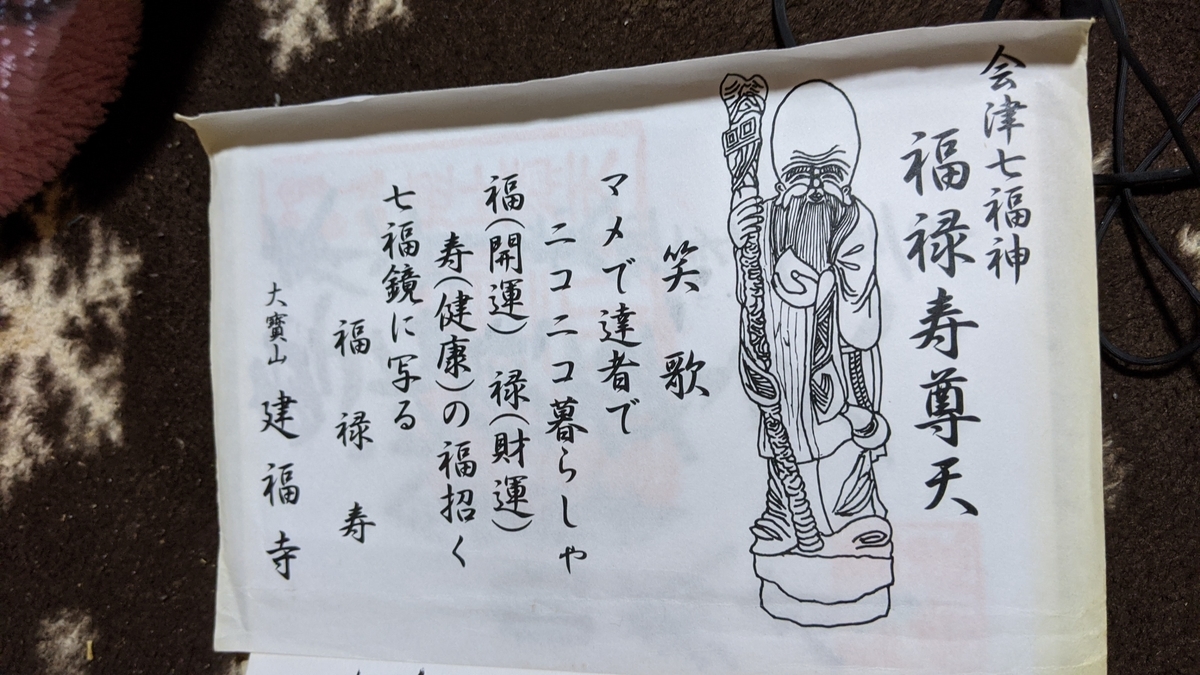 会津七福神
福禄寿尊天
笑歌
マメで達者で
ニコニコ暮らしゃ
福(開運) 禄(財運)
寿(健康)の福招く
七福鏡に写る
福禄寿
大寳山 建福寺